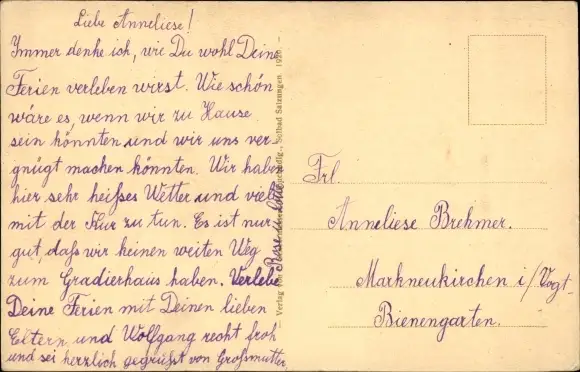 Liebe Anneliese!
Immer denke ich, wie Du wohl Deine
Ferien verleben wirst. Wie schön
wäre es, wenn wir zu Hause
sein könnten und wir uns ver-
gnügt machen könnten. Wir haben
hier sehr heißes Wetter und viel
mit der Kur zu tun. Es ist nur
gut, daß wir keinen weiten Weg
zum Gradierhaus haben. Verlebe
Deine Ferien mit Deinen lieben
Eltern und Wolfgang recht froh
und sei herzlich gegrüßt von Großmutter
— Verlag von Solbad Salzungen. 1926 —
Frl.
Anneliese Brehmer.
Markneukirchen i/Vogt-
Bienengarten.